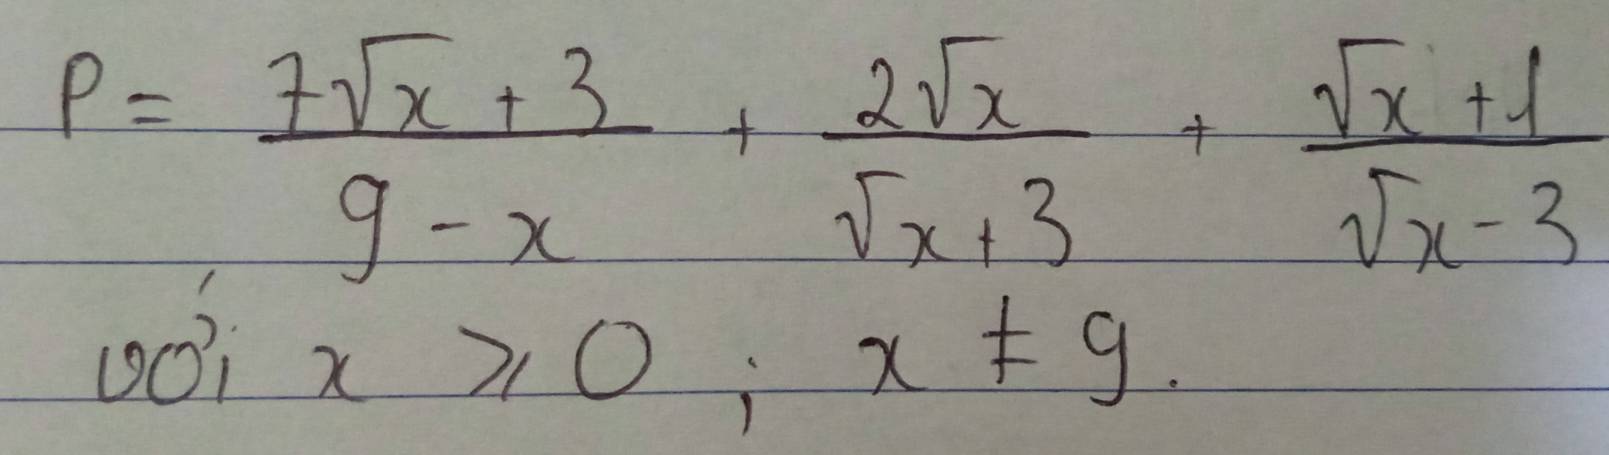 P = \frac{7\sqrt{x} + 3}{9 - x} + \frac{2\sqrt{x}}{\sqrt{x} + 3} + \frac{\sqrt{x} + 1}{\sqrt{x} - 3}
với x ⩾ 0 ; x ≠ 9.